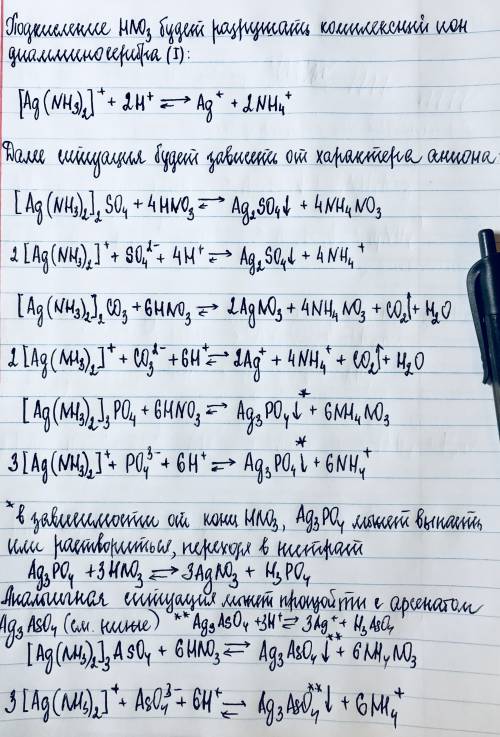 Подкисление HNO₃ будет разрушать комплексный ион
диамминосеребра (I):
[Ag(NH₃)₂]⁺ + 2H⁺ ⇌ Ag⁺ + 2NH₄⁺
Далее ситуация будет зависеть от характера аниона
[Ag(NH₃)₂]₂SO₄ + 4HNO₃ ⇌ Ag₂SO₄↓ + 4NH₄NO₃
2[Ag(NH₃)₂]⁺ + SO₄²⁻ + 4H⁺ ⇌ Ag₂SO₄↓ + 4NH₄⁺
[Ag(NH₃)₂]₂CO₃ + 6HNO₃ ⇌ 2AgNO₃ + 4NH₄NO₃ + CO₂↑ + H₂O
2[Ag(NH₃)₂]⁺ + CO₃²⁻ + 6H⁺ ⇌ 2Ag⁺ + 4NH₄⁺ + CO₂↑ + H₂O
[Ag(NH₃)₂]₃PO₄ + 6HNO₃ ⇌ Ag₃PO₄↓* + 6NH₄NO₃
3[Ag(NH₃)₂]⁺ + PO₄³⁻ + 6H⁺ ⇌ Ag₃PO₄↓* + 6NH₄⁺
*в зависимости от конц HNO₃, Ag₃PO₄ может выпасть
или раствориться, переходя в нитрат
Ag₃PO₄ + 3HNO₃ ⇌ 3AgNO₃ + H₃PO₄
Аналогичная ситуация может произойти с арсенатом
Ag₃AsO₄ (см. ниже) **Ag₃AsO₄ + 3H⁺ ⇌ 3Ag⁺ + H₃AsO₄
[Ag(NH₃)₂]₃AsO₄ + 6HNO₃ ⇌ Ag₃AsO₄↓** + 6NH₄NO₃
3[Ag(NH₃)₂]⁺ + AsO₄³⁻ + 6H⁺ ⇌ Ag₃AsO₄**↓ + 6NH₄⁺